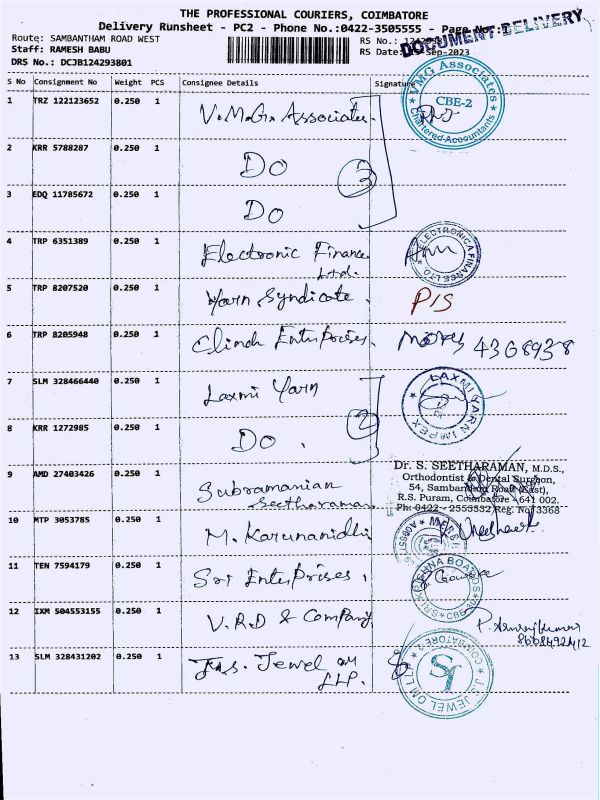 THE PROFESSIONAL COURIERS, COIMBATORE
Delivery Runsheet - PC2 - Phone No.:0422-3505555 - Page No.:
DOCUMENT DELIVERY
Route: SAMBANTHAM ROAD WEST
RS No.:
Staff: RAMESH BABU
RS Date: Sep-2023
DRS No.: DCJB124293801
S No Consignment No Weight PCS Consignee Details Signature
VMG Associates
CBE-2
Chartered Accountants
1 TRZ 122123652 0.250 1 V.M.G. Associates
2 KRR 5788287 0.250 1 DO
3
3 EDQ 11785672 0.250 1 DO
4 TRP 6351389 0.250 1 Electronic Finance Ltd.
ELECTRONICA FINANCE LTD.
5 TRP 8207520 0.250 1 Yarn Syndicate. P/S
6 TRP 8205948 0.250 1 Enterprises.
7 SLM 328466440 0.250 1 Laxmi Yarn
LAXMI YARN IMPEX
8 KRR 1272985 0.250 1 DO.
2
Dr. S. SEETHARAMAN, M.D.S.,
Orthodontist & Dental Surgeon,
54, Sambandam Road (East),
R.S. Puram, Coimbatore - 641 002.
Ph: 0422 - 2555532 Reg. No: 3368
9 AMD 27403426 0.250 1 Subramanian Seetharaman
10 MTP 3053785 0.250 1 M. Karunanidhi
11 TEN 7594179 0.250 1 Sri Enterprises,
12 IXM 504553155 0.250 1 V.R.D & Company
13 SLM 328431202 0.250 1 J.S. Jewel om LLP.
COIMBATORE
SJ
J.S. JEWEL OM LLP